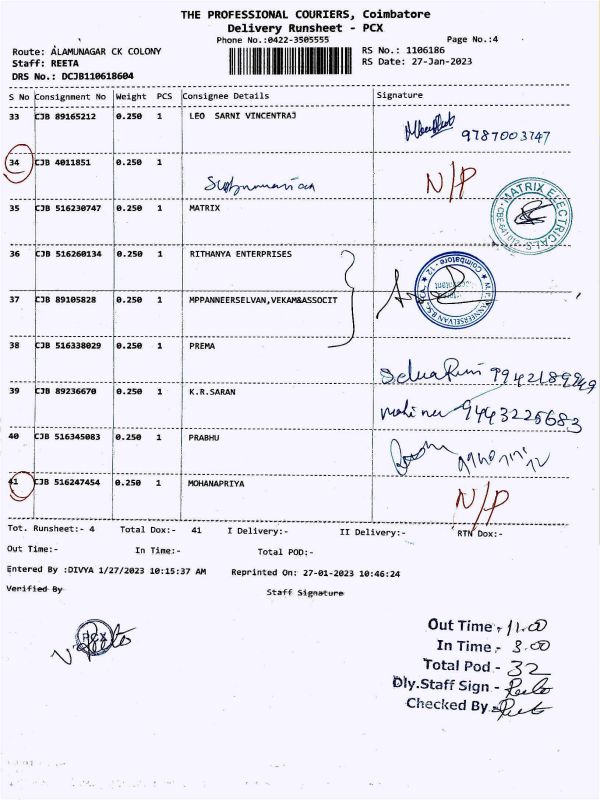 THE PROFESSIONAL COURIERS, Coimbatore
Delivery Runsheet - PCX
Phone No.:0422-3505555 Page No.:4
Route: ALAMUNAGAR CK COLONY RS No.: 1106186
Staff: REETA RS Date: 27-Jan-2023
DRS No.: DCJB110618604
S No Consignment No Weight PCS Consignee Details Signature
33 CJB 89165212 0.250 1 LEO SARNI VINCENTRAJ
9787003747
34 CJB 4011851 0.250 1
N/P
35 CJB 516230747 0.250 1 MATRIX
MATRIX ELECTRICALS
CBE-641 012
36 CJB 516260134 0.250 1 RITHANYA ENTERPRISES
37 CJB 89105828 0.250 1 MPPANNEERSELVAN,VEKAM&ASSOCIT
38 CJB 516338029 0.250 1 PREMA
9942189949
39 CJB 89236670 0.250 1 K.R.SARAN
9443225683
40 CJB 516345083 0.250 1 PRABHU
41 CJB 516247454 0.250 1 MOHANAPRIYA
N/P
Tot. Runsheet:- 4 Total Dox:- 41 I Delivery:- II Delivery:- RTN Dox:-
Out Time:- In Time:- Total POD:-
Entered By :DIVYA 1/27/2023 10:15:37 AM Reprinted On: 27-01-2023 10:46:24
Verified By Staff Signature
PCX
Out Time - 11.00
In Time - 3.00
Total Pod - 32
Dly.Staff Sign -
Checked By -